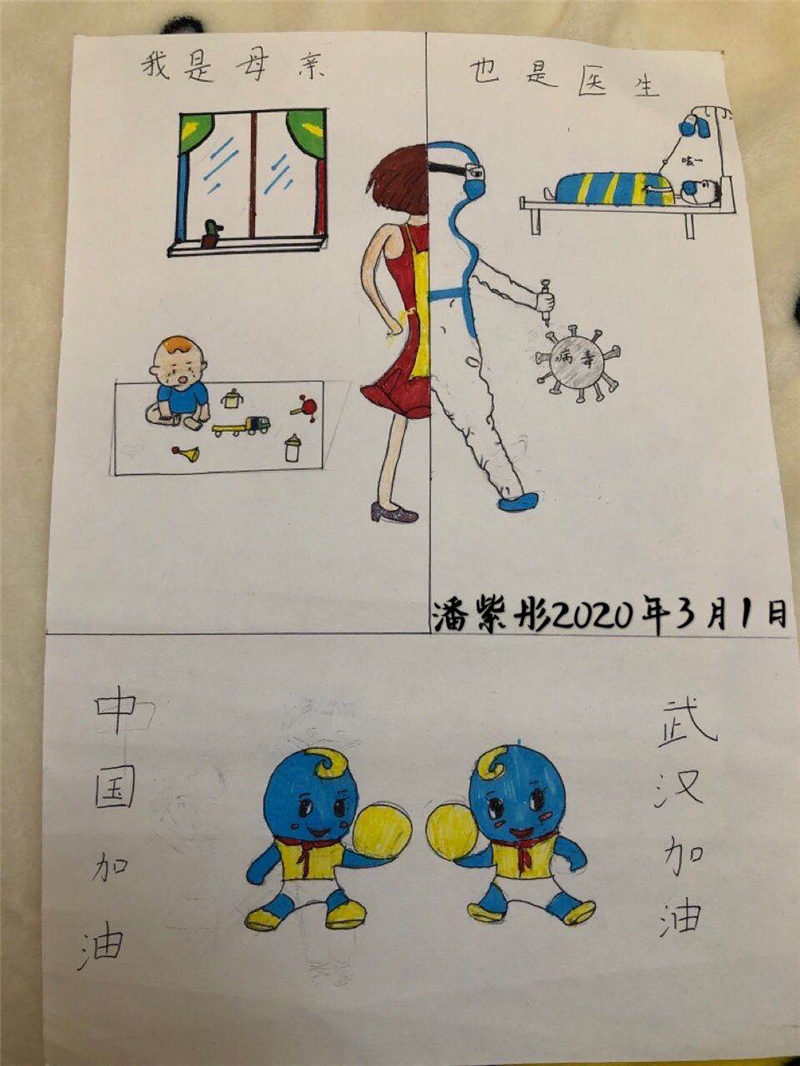 我是母亲
也是医生
咳一
病毒
潘紫彤2020年3月1日
中国加油
武汉加油